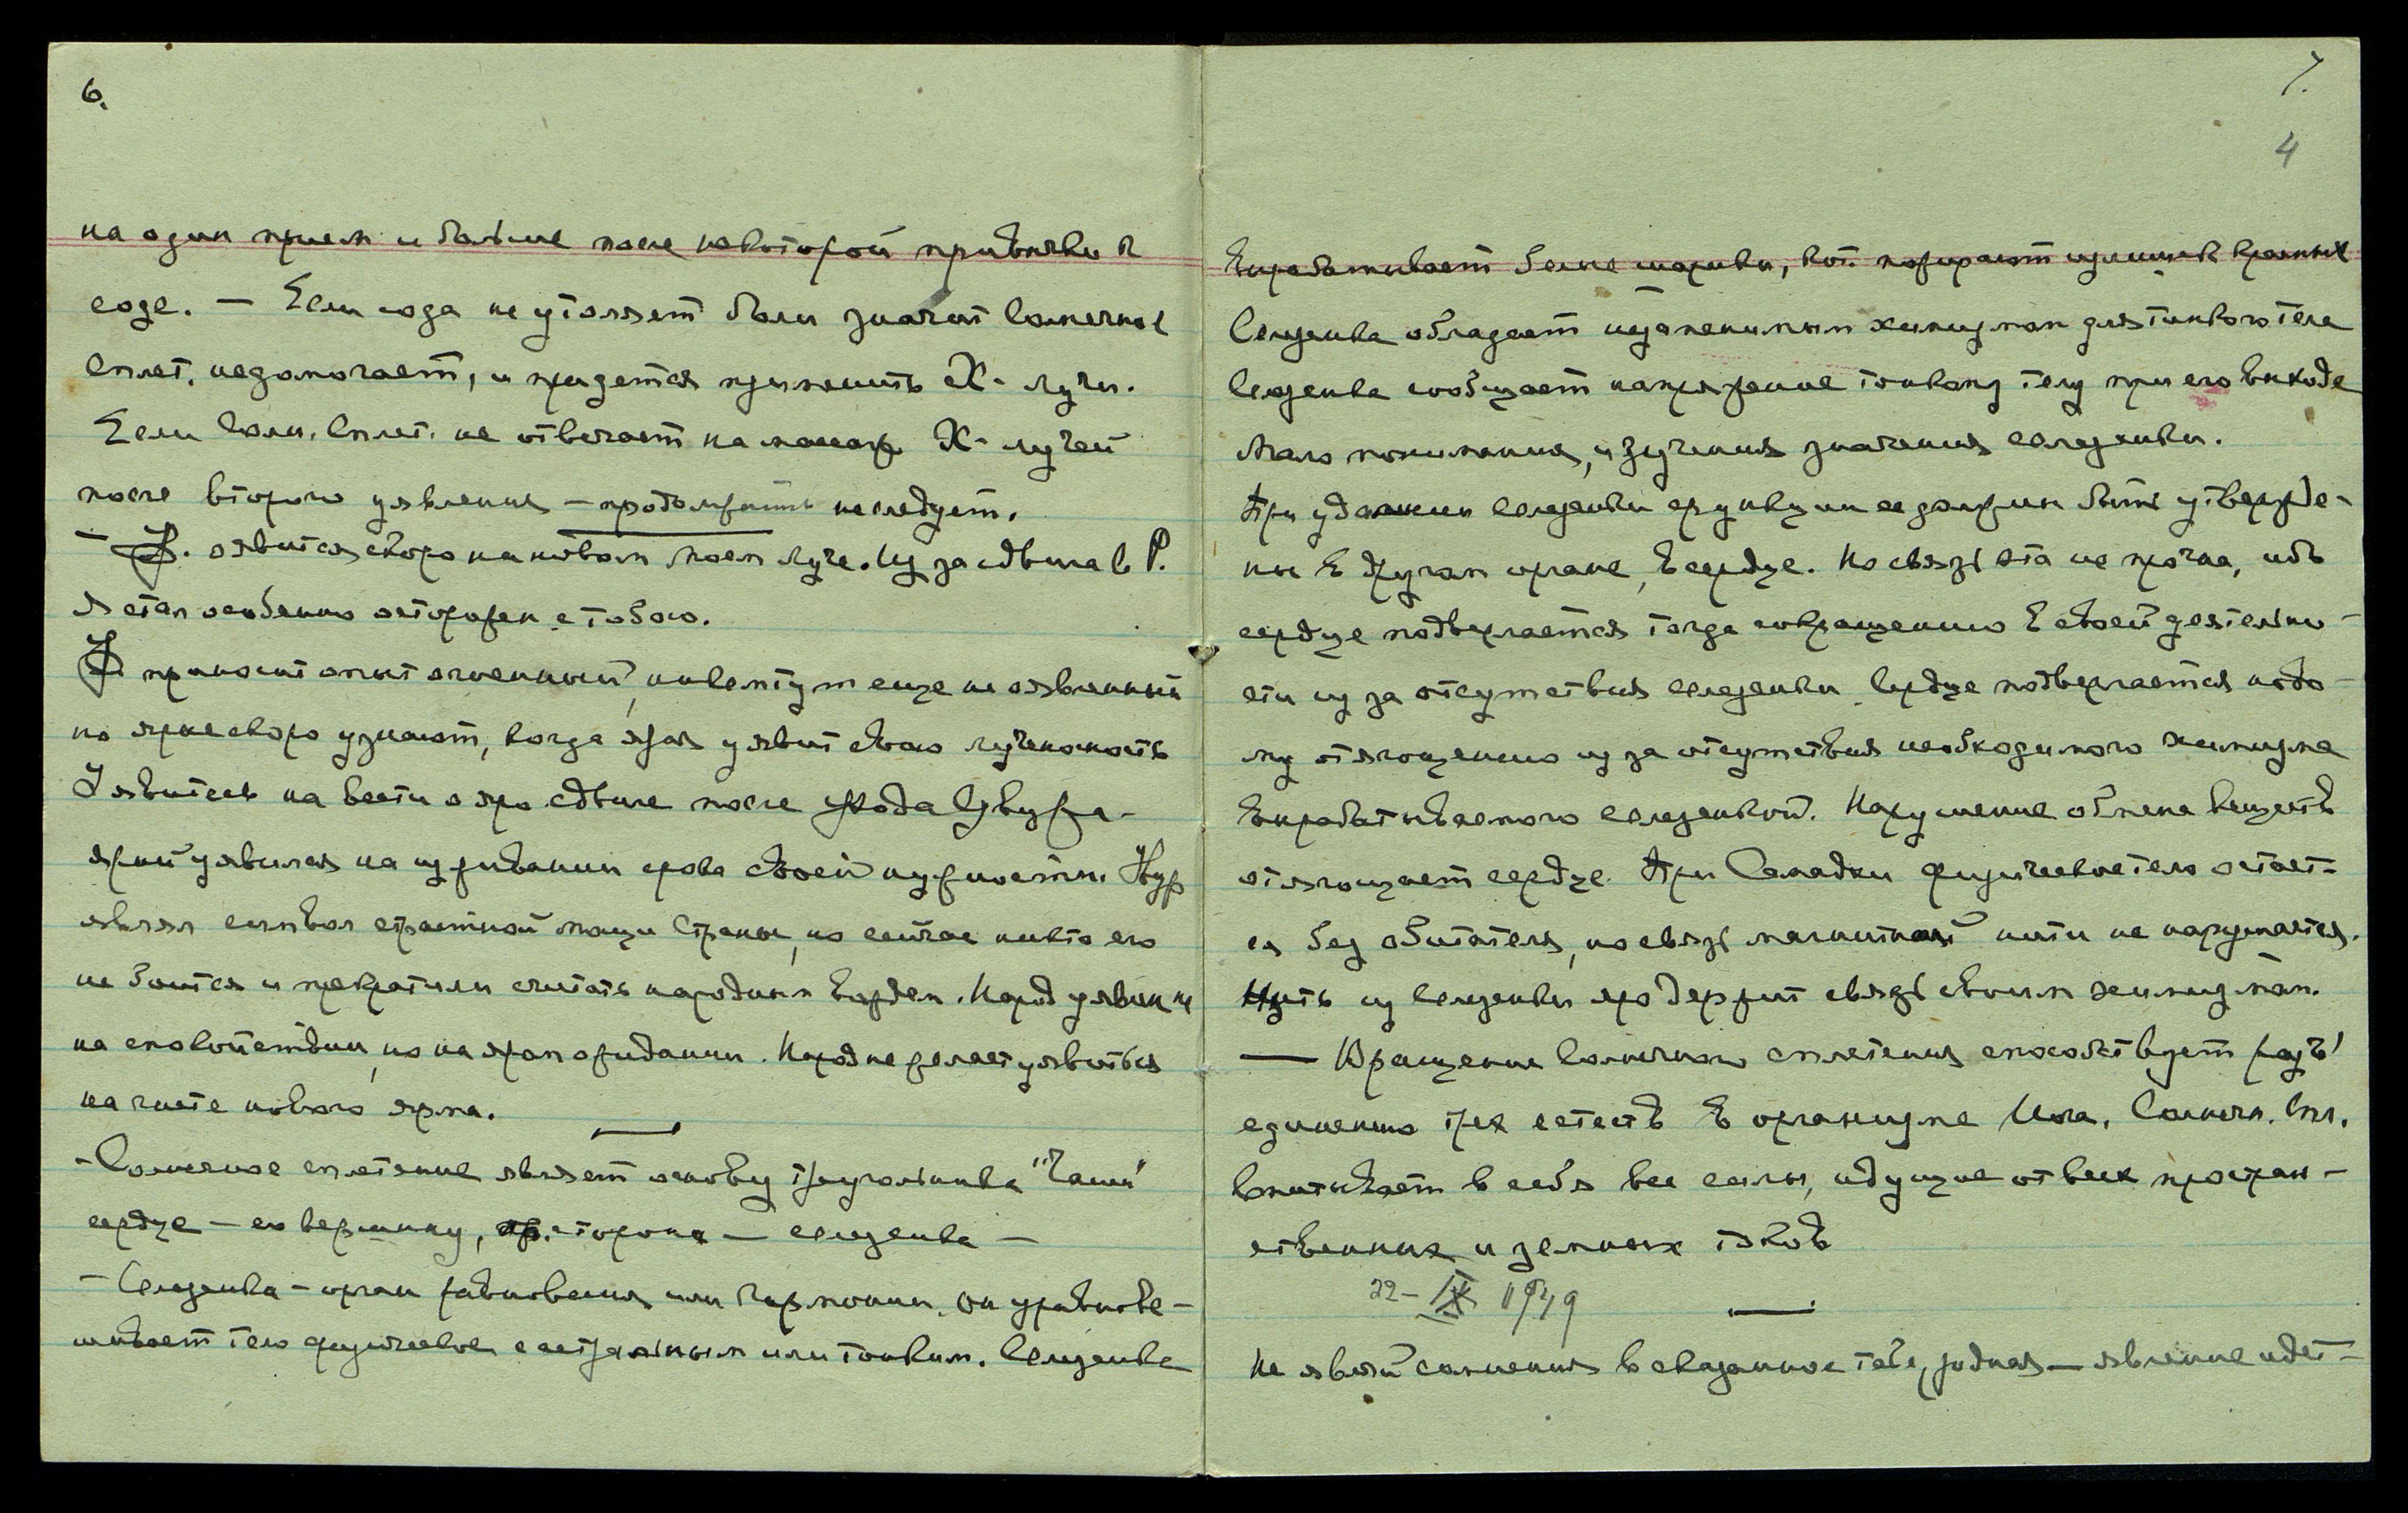 6.
на один прием и больше после некоторой привычки к
соде. — Если сода не утоляет боли значит солнечное
сплет. недомогает, и придется применить X- лучи.
Если солн. сплет. не отвечает на X- лучей
после второго уявления — продолжать не следует.
— оявится скоро на новом моем луче. Из за сдвига в Р.
я стал особенно осторожен с тобою.
приносит опыт огненный, еще не оявленный
но ярые скоро узнают, когда ярая уявит свою лучености
Уявитесь на вести о яро сдвиге после
ярый уявился на изживании срока своей нужности. Нур
являл символ страстной мощи Страны, но сейчас никто его
не боится и прекратили считать народным вождем. Народ уявлен не
на спокойствии, но на яром ожидании. Народ не желает уявиться
на гнете нового ярма.
- Солнечное сплетение являет основу треугольника "Чаши"
сердце — его вершину, пр. сторона — селезенка —
- Селезенка - орган равновесия или гармонии. Он уравнове-
шивает тело физическое с астральным или тонким. Селезенка
7.
4
вырабатывает белые шарики, кот. пожирают излишек красных
Селезенка обладает незаменимым химизмом для тонкого тела
Селезенка сообщает напряжение тонкому телу при его выходе
Мало понимания, изучения значения селезенки.
При удалении селезенки функции ее должны быть утвержде-
ны в другом органе, в сердце. Но связь эта не прочна, ибо
сердце подвергается тогда сокращению в своей деятельно-
сти из за отсутствия селезенки. Сердце подвергается
му отягощению из за отсутствия необходимого химизма
вырабатываемого селезенкой. Нарушение обмена веществ
отягощает сердце. При Самадхи физическое тело остает-
ся без обитателя, но связь магнитной нити не нарушается.
Нить из селезенки яро держит связь своим химизмом.
— Вращение Солнечного сплетения способствует разъ-
единению трех естеств в организме Йога. Солнечн. Спл.
впитывает в себя все силы, идущие от всех простран-
ственных и земных токов
22 - IX 1949
Не являй сомнения в сказанное тебе, родная — явление идет —